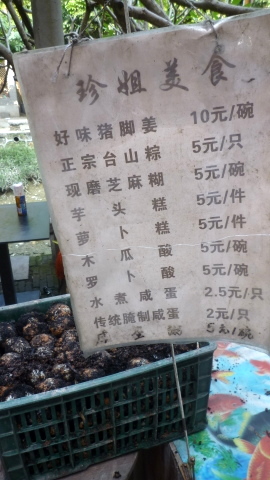 珍姐美食
好味猪脚姜 10元/碗
正宗台山粽 5元/只
现磨芝麻糊 5元/碗
芋头糕 5元/件
萝卜糕 5元/件
木瓜酸 5元/碗
罗卜酸 5元/碗
水煮咸蛋 2.5元/只
传统腌制咸蛋 2元/只
5元/碗